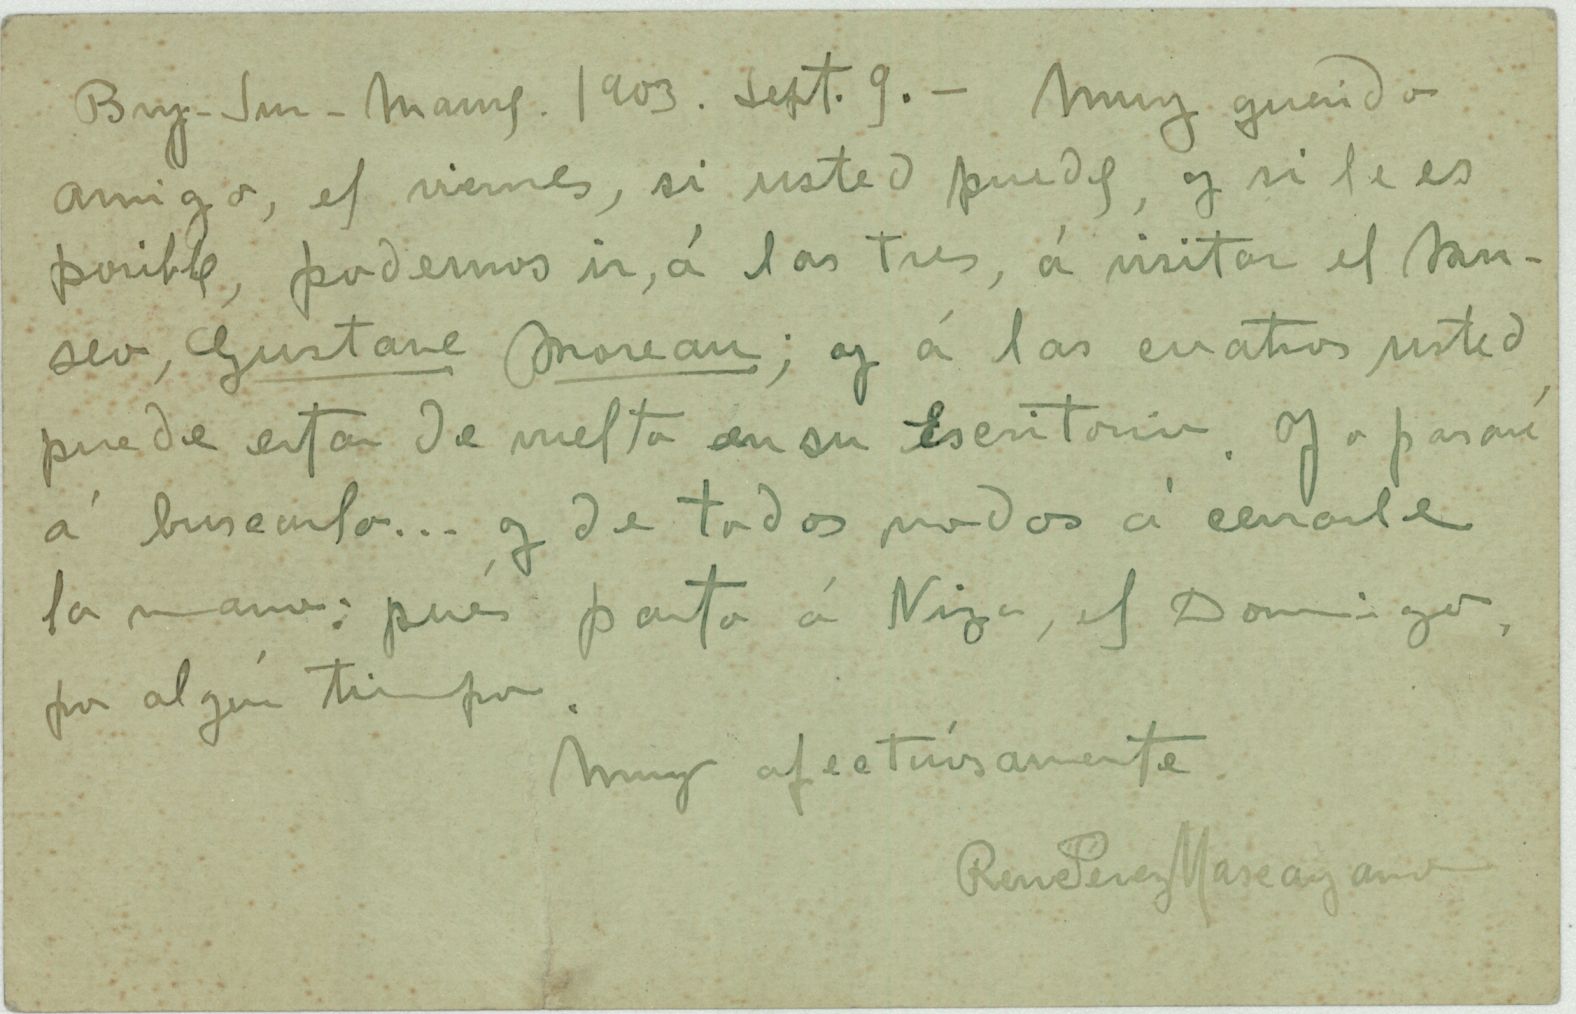 Bry-Sur-Marne. 1903. Sept. 9. — Muy querido
amigo, el viernes, si usted puede, y si le es
posible, podemos ir, á las tres, á visitar el Mu-
seo, Gustave Moreau; y á las cuatros usted
puede estar de vuelta en su Escritorio. Yo pasaré
á buscarlo... y de todos modos á cerrarle
la mano: pués parto á Niza, el Domingo,
por algún tiempo.
Muy afectuósamente
Rene Pérez Mascayano